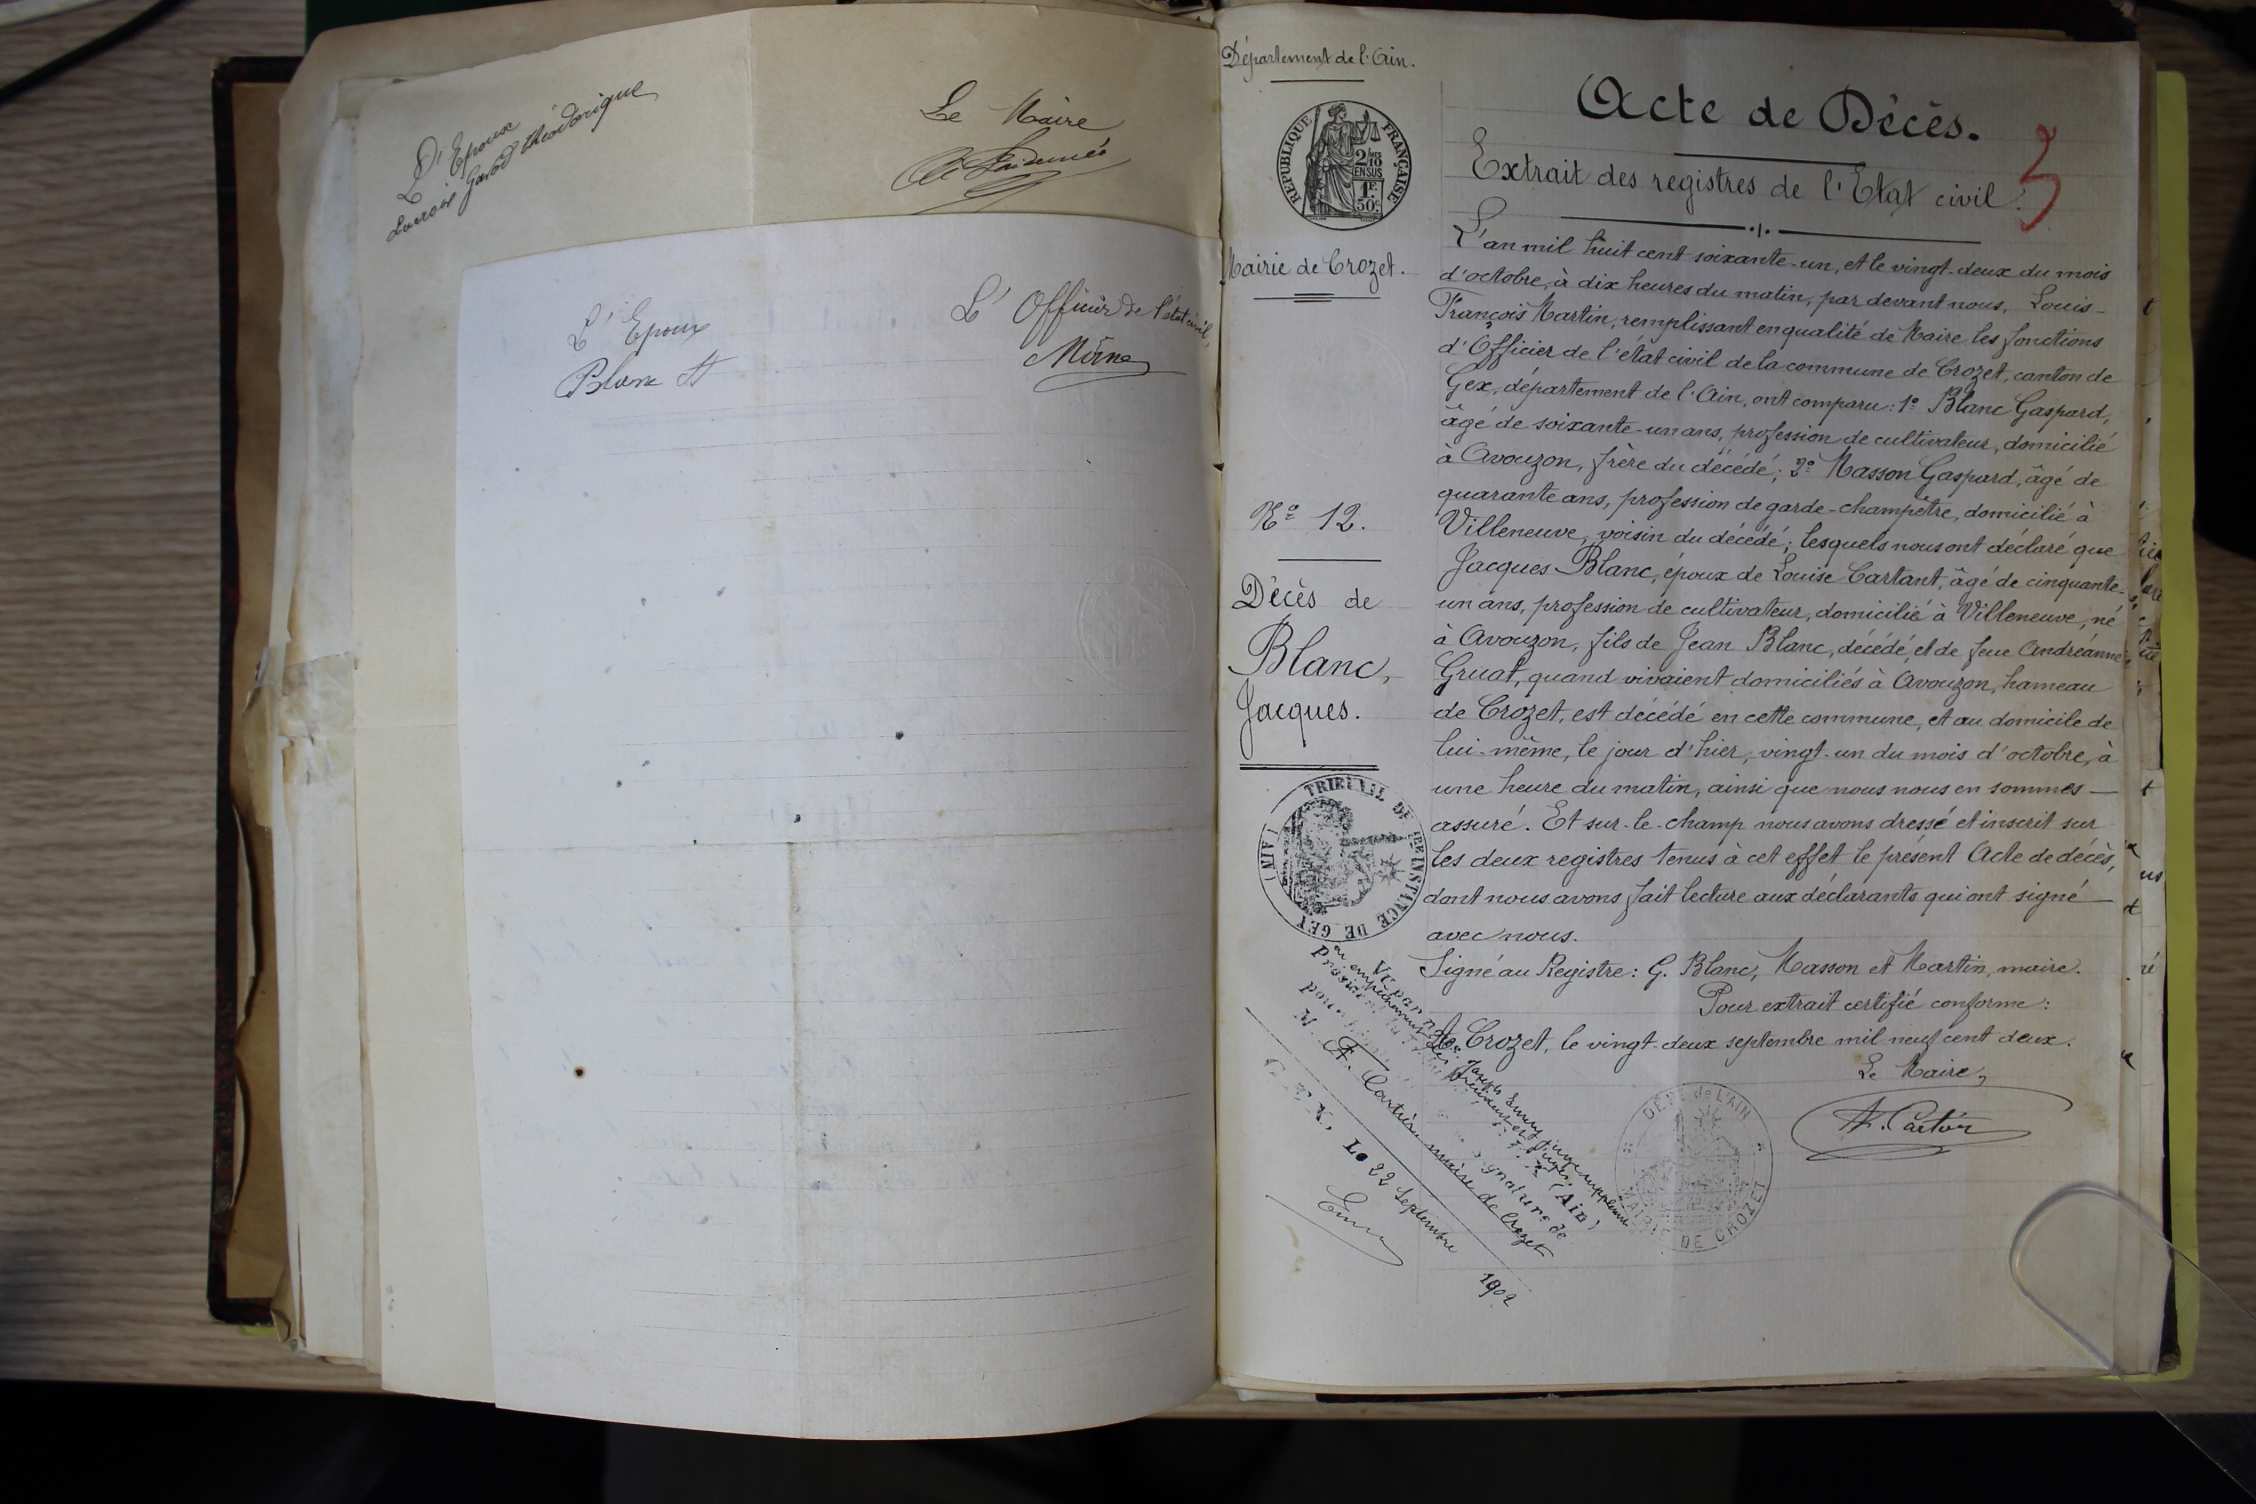 L'Epoux
Garod théodorique
Le Maire
L'Epoux
Blanc
L'Officier de l'état civil,
Département de l'Ain.
REPUBLIQUE FRANÇAISE
2/10
EN SUS
1F.
50c
Mairie de Crozet.
No 12.
Décès de
Blanc,
Jacques.
TRIBUNAL DE 1RE INSTANCE DE GEX
(AIN)
Acte de Décès.
3
Extrait des registres de l'Etat civil.
L'an mil huit cent soixante-un, et le vingt-deux du mois
d'octobre, à dix heures du matin, par devant nous, Louis-
François Martin, remplissant en qualité de Maire les fonctions
d'Officier de l'état civil de la commune de Crozet, canton de
Gex, département de l'Ain, ont comparu: 1o Blanc Gaspard,
âgé de soixante-un ans, profession de cultivateur, domicilié
à Avouzon, frère du décédé; 2o Masson Gaspard, âgé de
quarante ans, profession de garde-champêtre, domicilié à
Villeneuve, voisin du décédé; lesquels nous ont déclaré que
Jacques Blanc, époux de Louise Cartant, âgé de cinquante-
un ans, profession de cultivateur, domicilié à Villeneuve, né
à Avouzon, fils de Jean Blanc, décédé, et de feue Andréanne
Gruat, quand vivaient domiciliés à Avouzon, hameau
de Crozet, est décédé en cette commune, et au domicile de
lui-même, le jour d'hier, vingt-un du mois d'octobre, à
une heure du matin, ainsi que nous nous en sommes
assuré. Et sur-le-champ nous avons dressé et inscrit sur
les deux registres tenus à cet effet le présent Acte de décès,
dont nous avons fait lecture aux déclarants qui ont signé
avec nous.
Signé au Registre: G. Blanc, Masson et Martin, maire.
Pour extrait certifié conforme:
A Crozet, le vingt-deux septembre mil neuf cent deux.
Le Maire,
DÉPT de L'AIN
MAIRIE DE CROZET
Vu par nous, Joseph juge suppléant
en empêchement des Président et Juges
(Ain)
pour signature de
M. F. maire de Crozet
GEX, Le 22 Septembre 1902